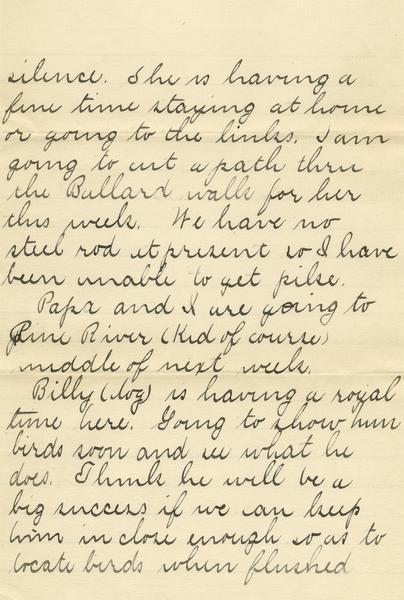 silence. She is having a
fine time staying at home
or going to the links. I am
going to cut a path thru
the Bullard walk for her
this week. We have no
steel rod at present so I have
been unable to get pilse.
Papa and I are going to
Pine River (Kid of course)
middle of next week.
Billy (dog) is having a royal
time here. Going to show him
birds soon and see what he
does. Think he will be a
big success if we can keep
him in close enough so as to
locate birds when flushed